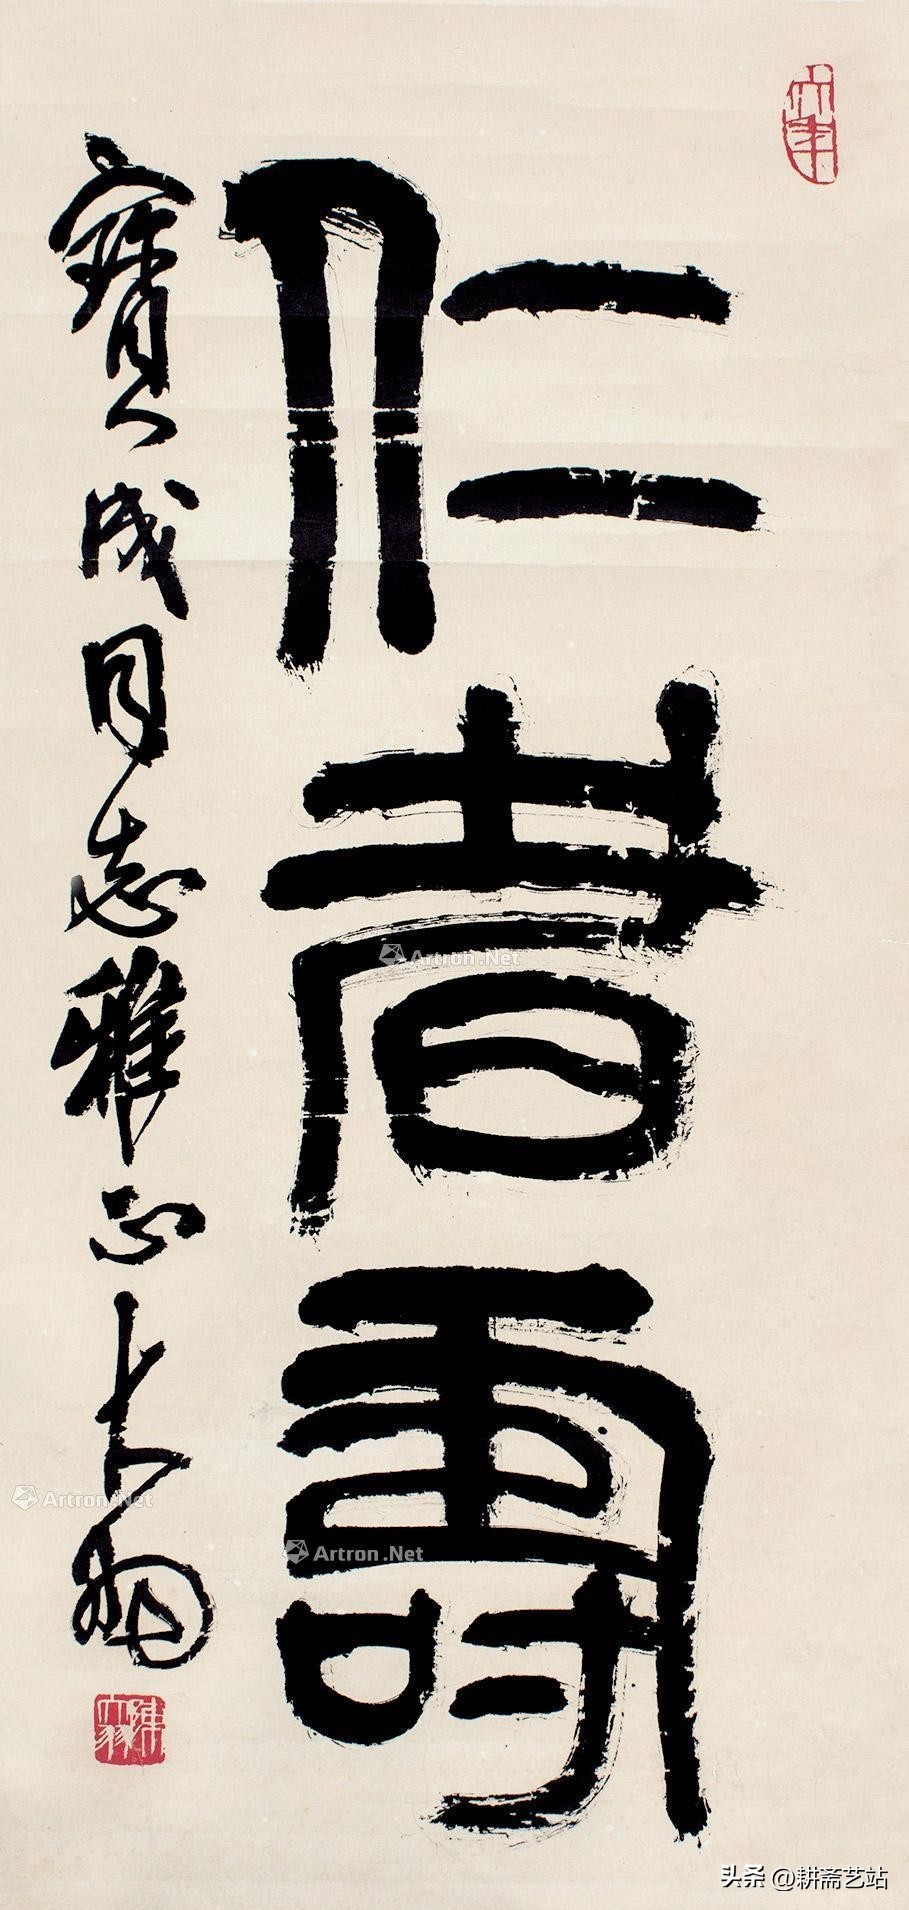 仁者寿
寶成同志雅正 大羽
陈大羽
Artron.Net
Artron.Net
Artron.Net
头条 @耕斋艺站